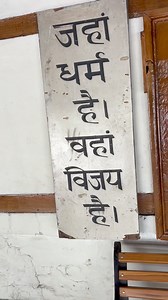 जहां
धर्म
है।
वहां
विजय
है।